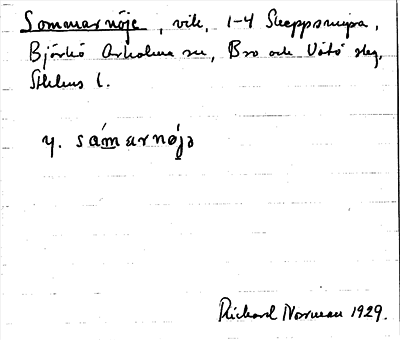 Sommarnöje, vik, 1-4 Skeppsmyra,
Björkö Arholma sn, Bro och Vätö slg,
Sthlms l.
y. sámarnøjə
Rickard Norman 1929.